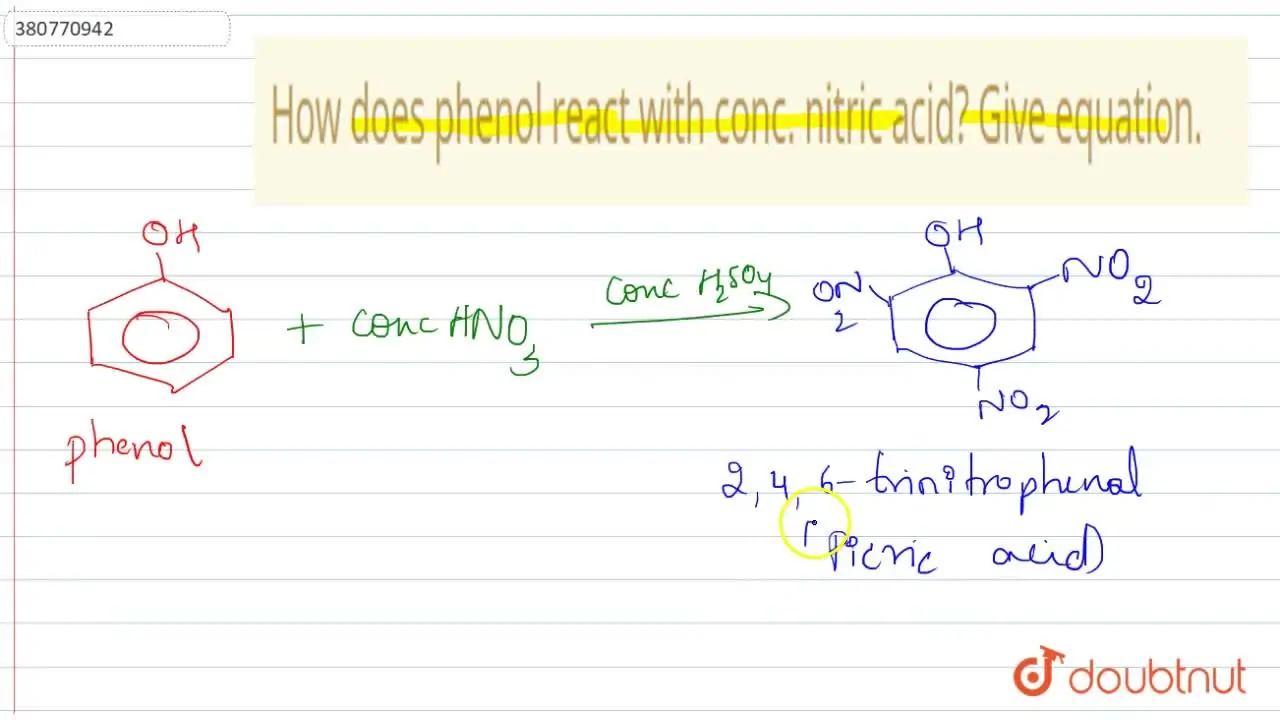 380770942
How does phenol react with conc. nitric acid? Give equation.
OH
+ conc HNO3
conc H2SO4
OH
O2N
NO2
NO2
phenol
2, 4, 6-trinitrophenol
(Picric acid)
doubtnut